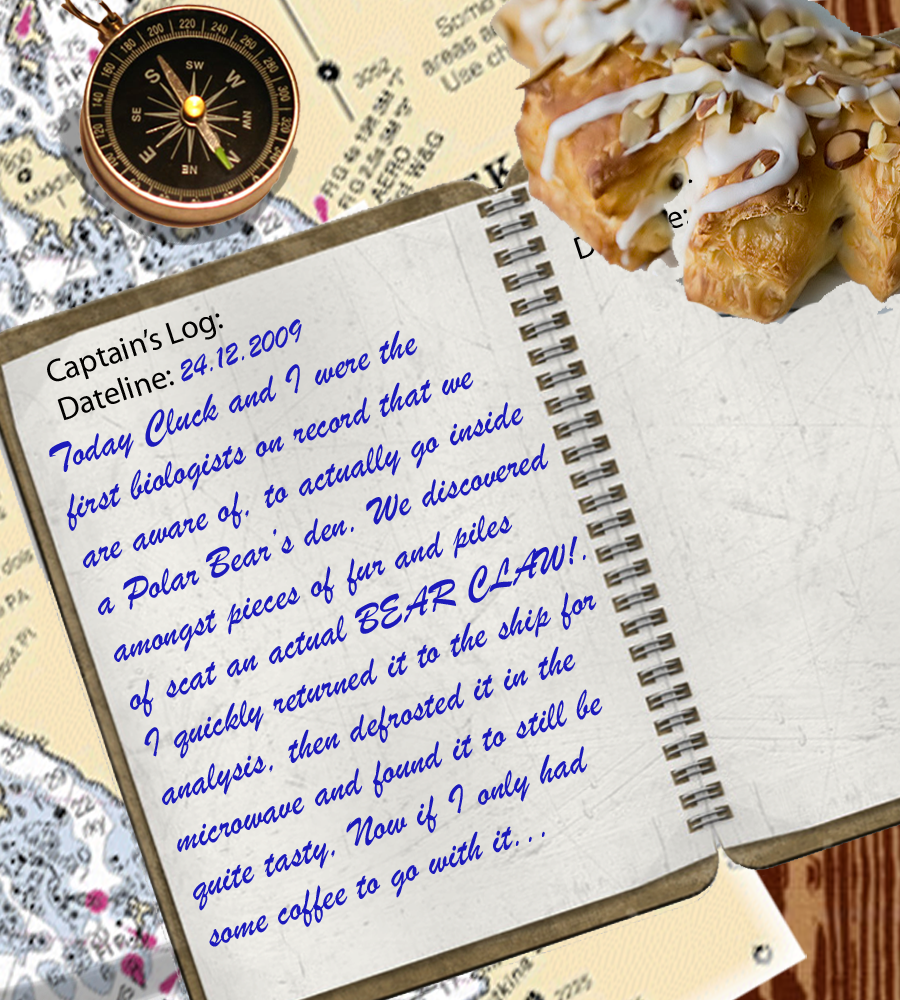 Captain's Log:
Dateline: 24.12.2009
Today Cluck and I were the
first biologists on record that we
are aware of, to actually go inside
a Polar Bear's den. We discovered
amongst pieces of fur and piles
of scat an actual BEAR CLAW!.
I quickly returned it to the ship for
analysis, then defrosted it in the
microwave and found it to still be
quite tasty. Now if I only had
some coffee to go with it...
200 220 240 260 280 300 320
180 160 140 120
S SW W NW N NE E SE
Some
areas a
Use ch
3052
AERO
W&G
PA
2225